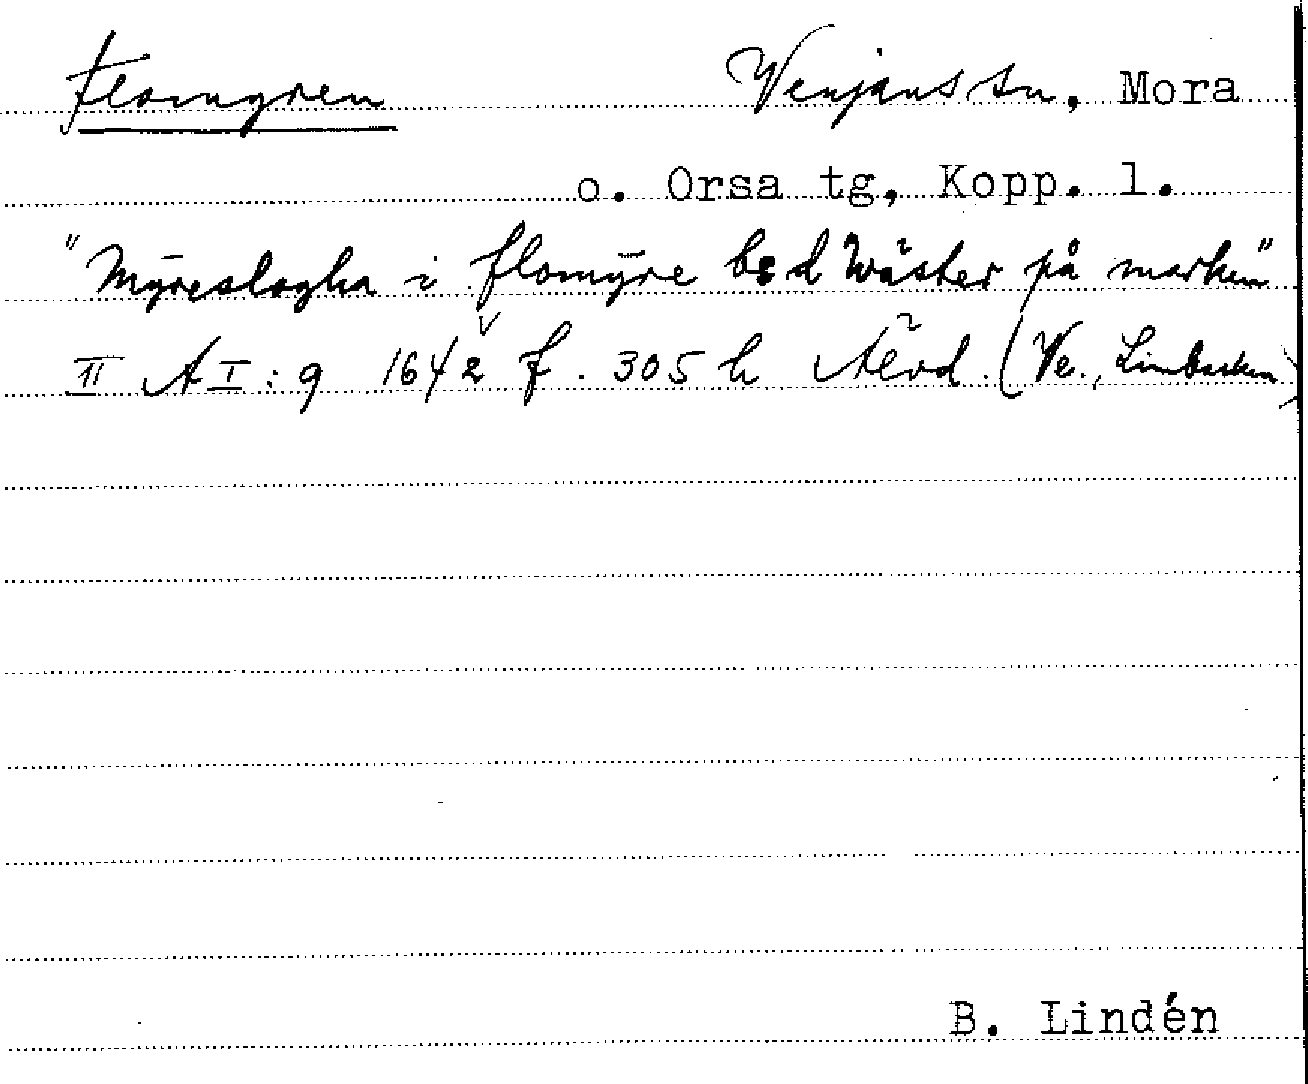 Flomyren Venjans sn, Mora
o. Orsa tg, Kopp. l.
"Mÿreslogha i flomÿre bed Wäster på marken"
II A I:9 1642 f. 305 h (Ve.,
B. Lindén